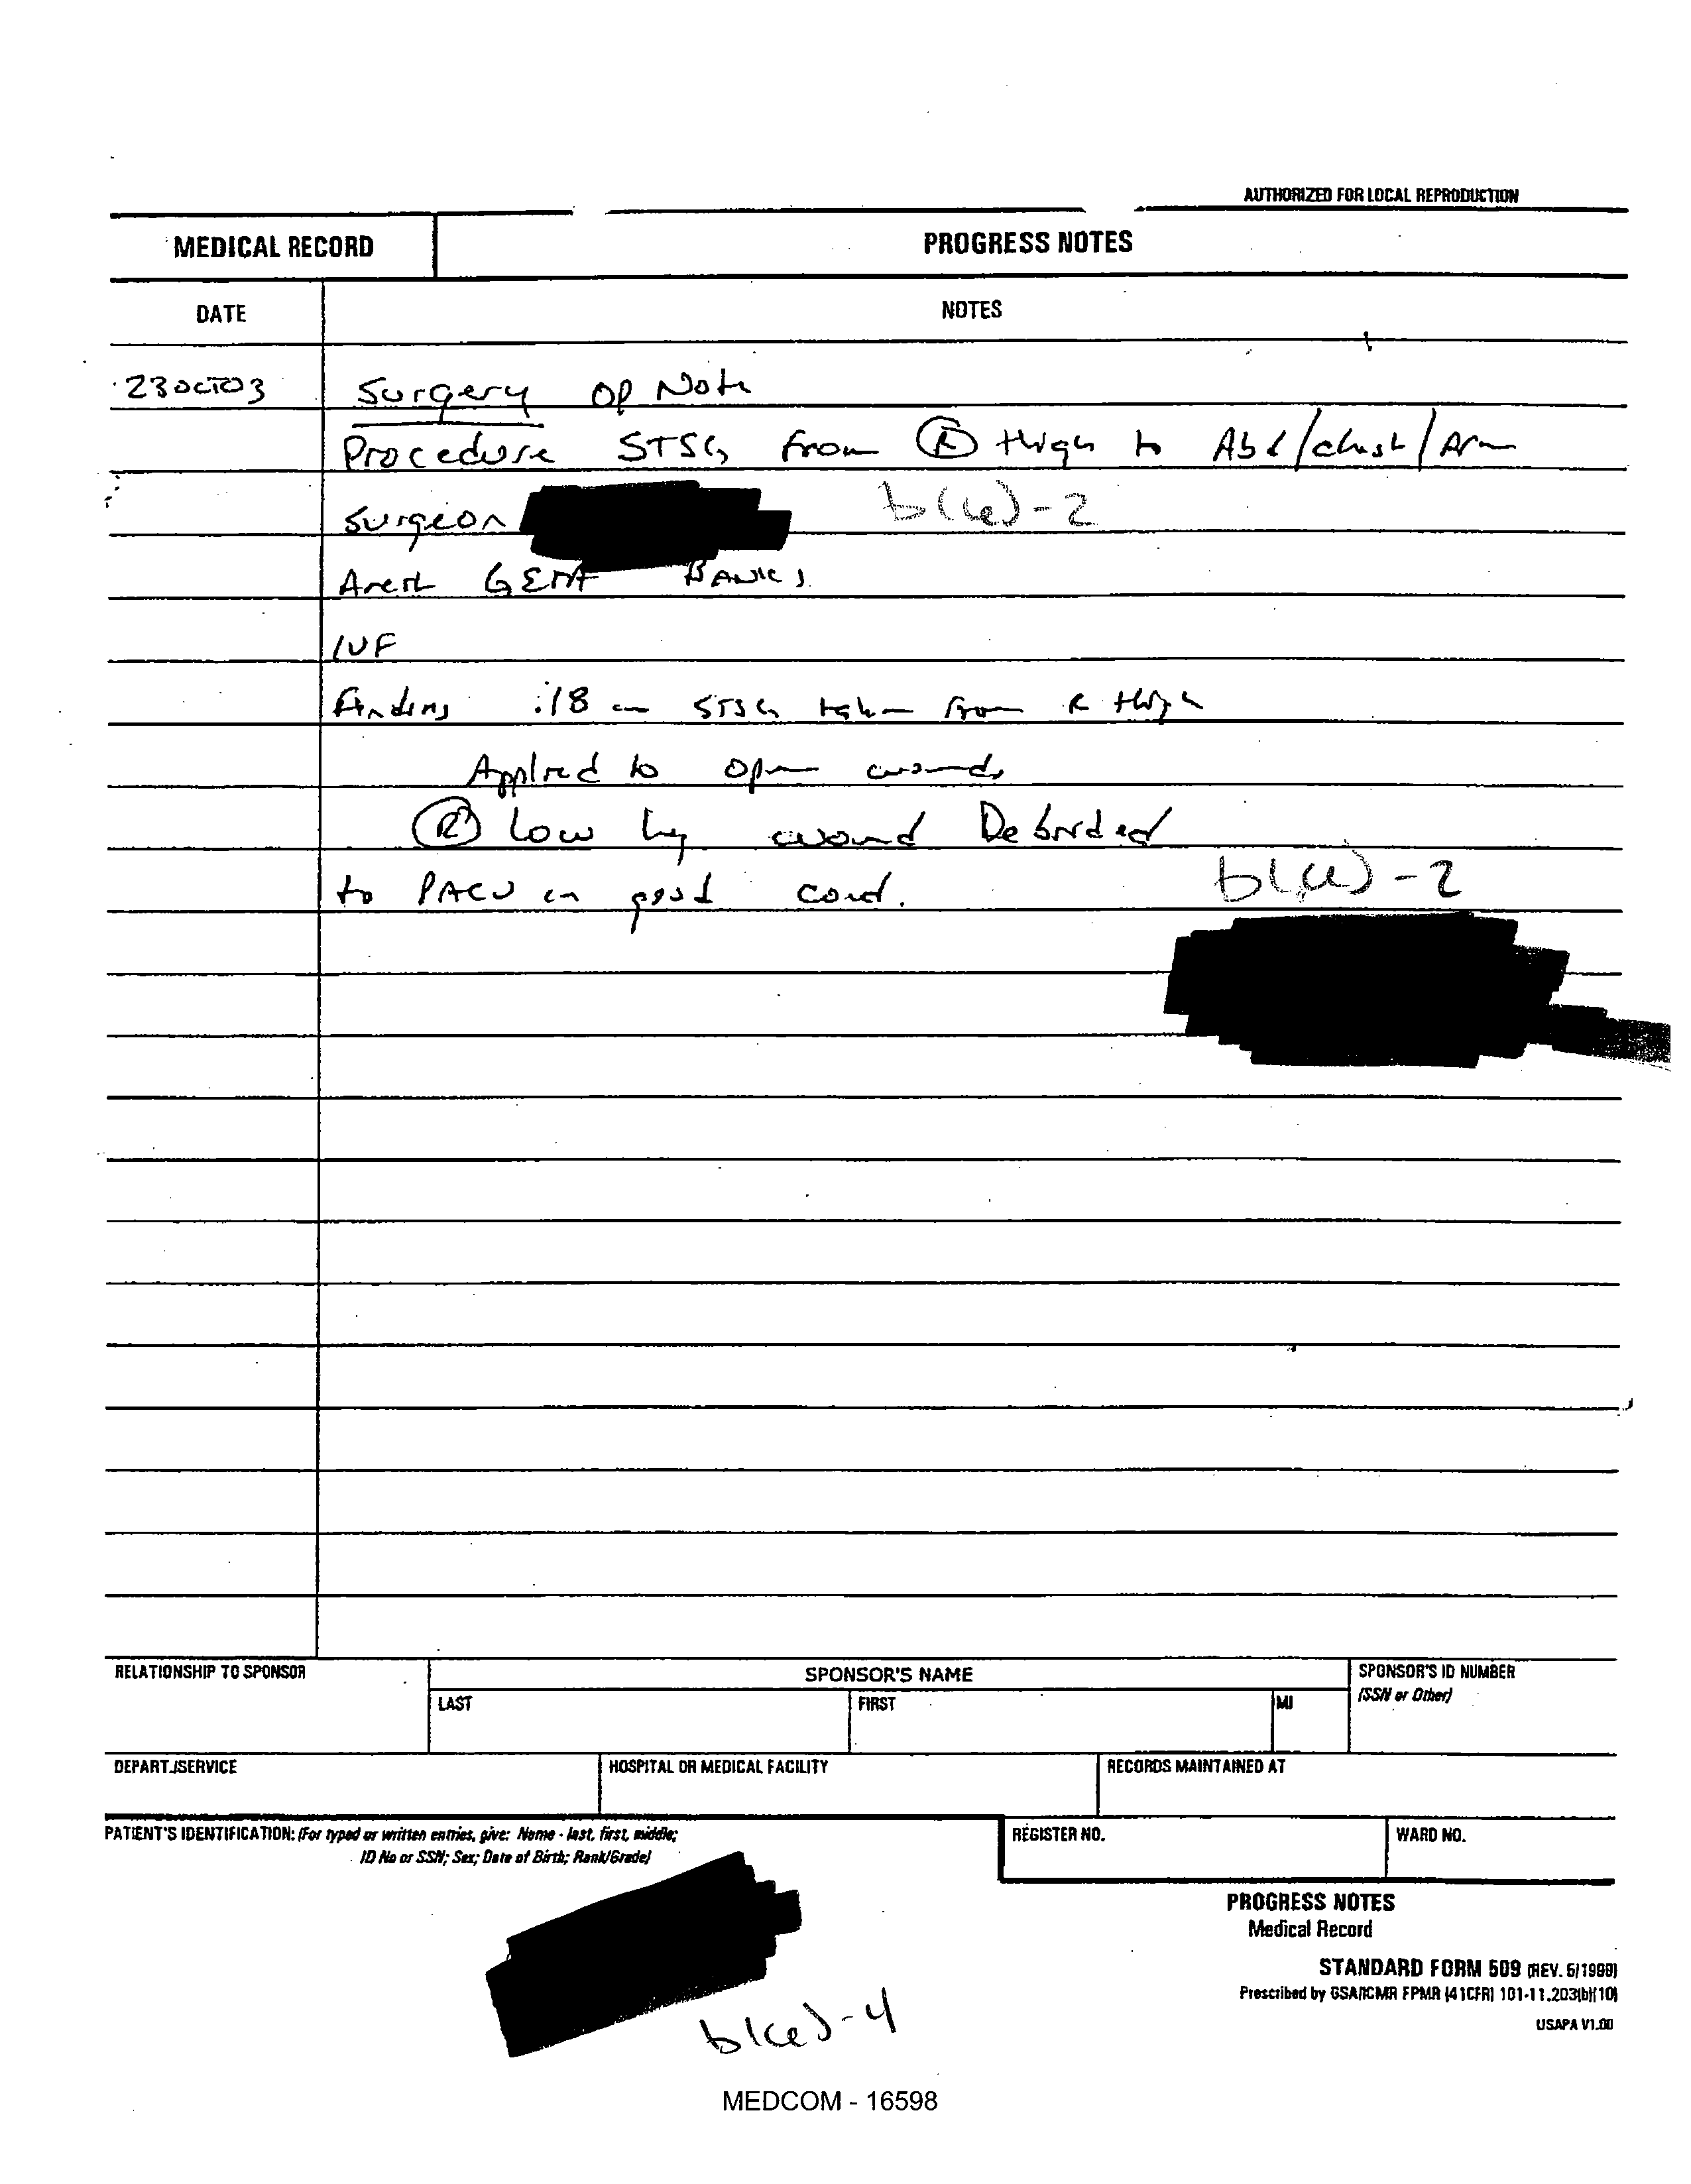 AUTHORIZED FOR LOCAL REPRODUCTION
MEDICAL RECORD PROGRESS NOTES
DATE NOTES
23OCT03 Surgery Op Note
Procedure STSG from Ⓡ thigh to Abd/chest/Arm
Surgeon b(6)-2
GETA BANKS
IUF
Findings 18 cm STSG taken from R thigh
Applied to open wounds
Ⓡ Low leg wound Debrided
to PACU in good cond. b(6)-2
RELATIONSHIP TO SPONSOR SPONSOR'S NAME SPONSOR'S ID NUMBER
LAST FIRST MI (SSN or Other)
DEPART./SERVICE HOSPITAL OR MEDICAL FACILITY RECORDS MAINTAINED AT
PATIENT'S IDENTIFICATION: (For typed or written entries, give: Name - last, first, middle; REGISTER NO. WARD NO.
ID No or SSN; Sex; Date of Birth; Rank/Grade)
PROGRESS NOTES
Medical Record
STANDARD FORM 509 (REV. 5/1999)
Prescribed by GSA/ICMR FPMR (41CFR) 101-11.203(b)(10)
USAPA V1.00
b(6)-4
MEDCOM - 16598